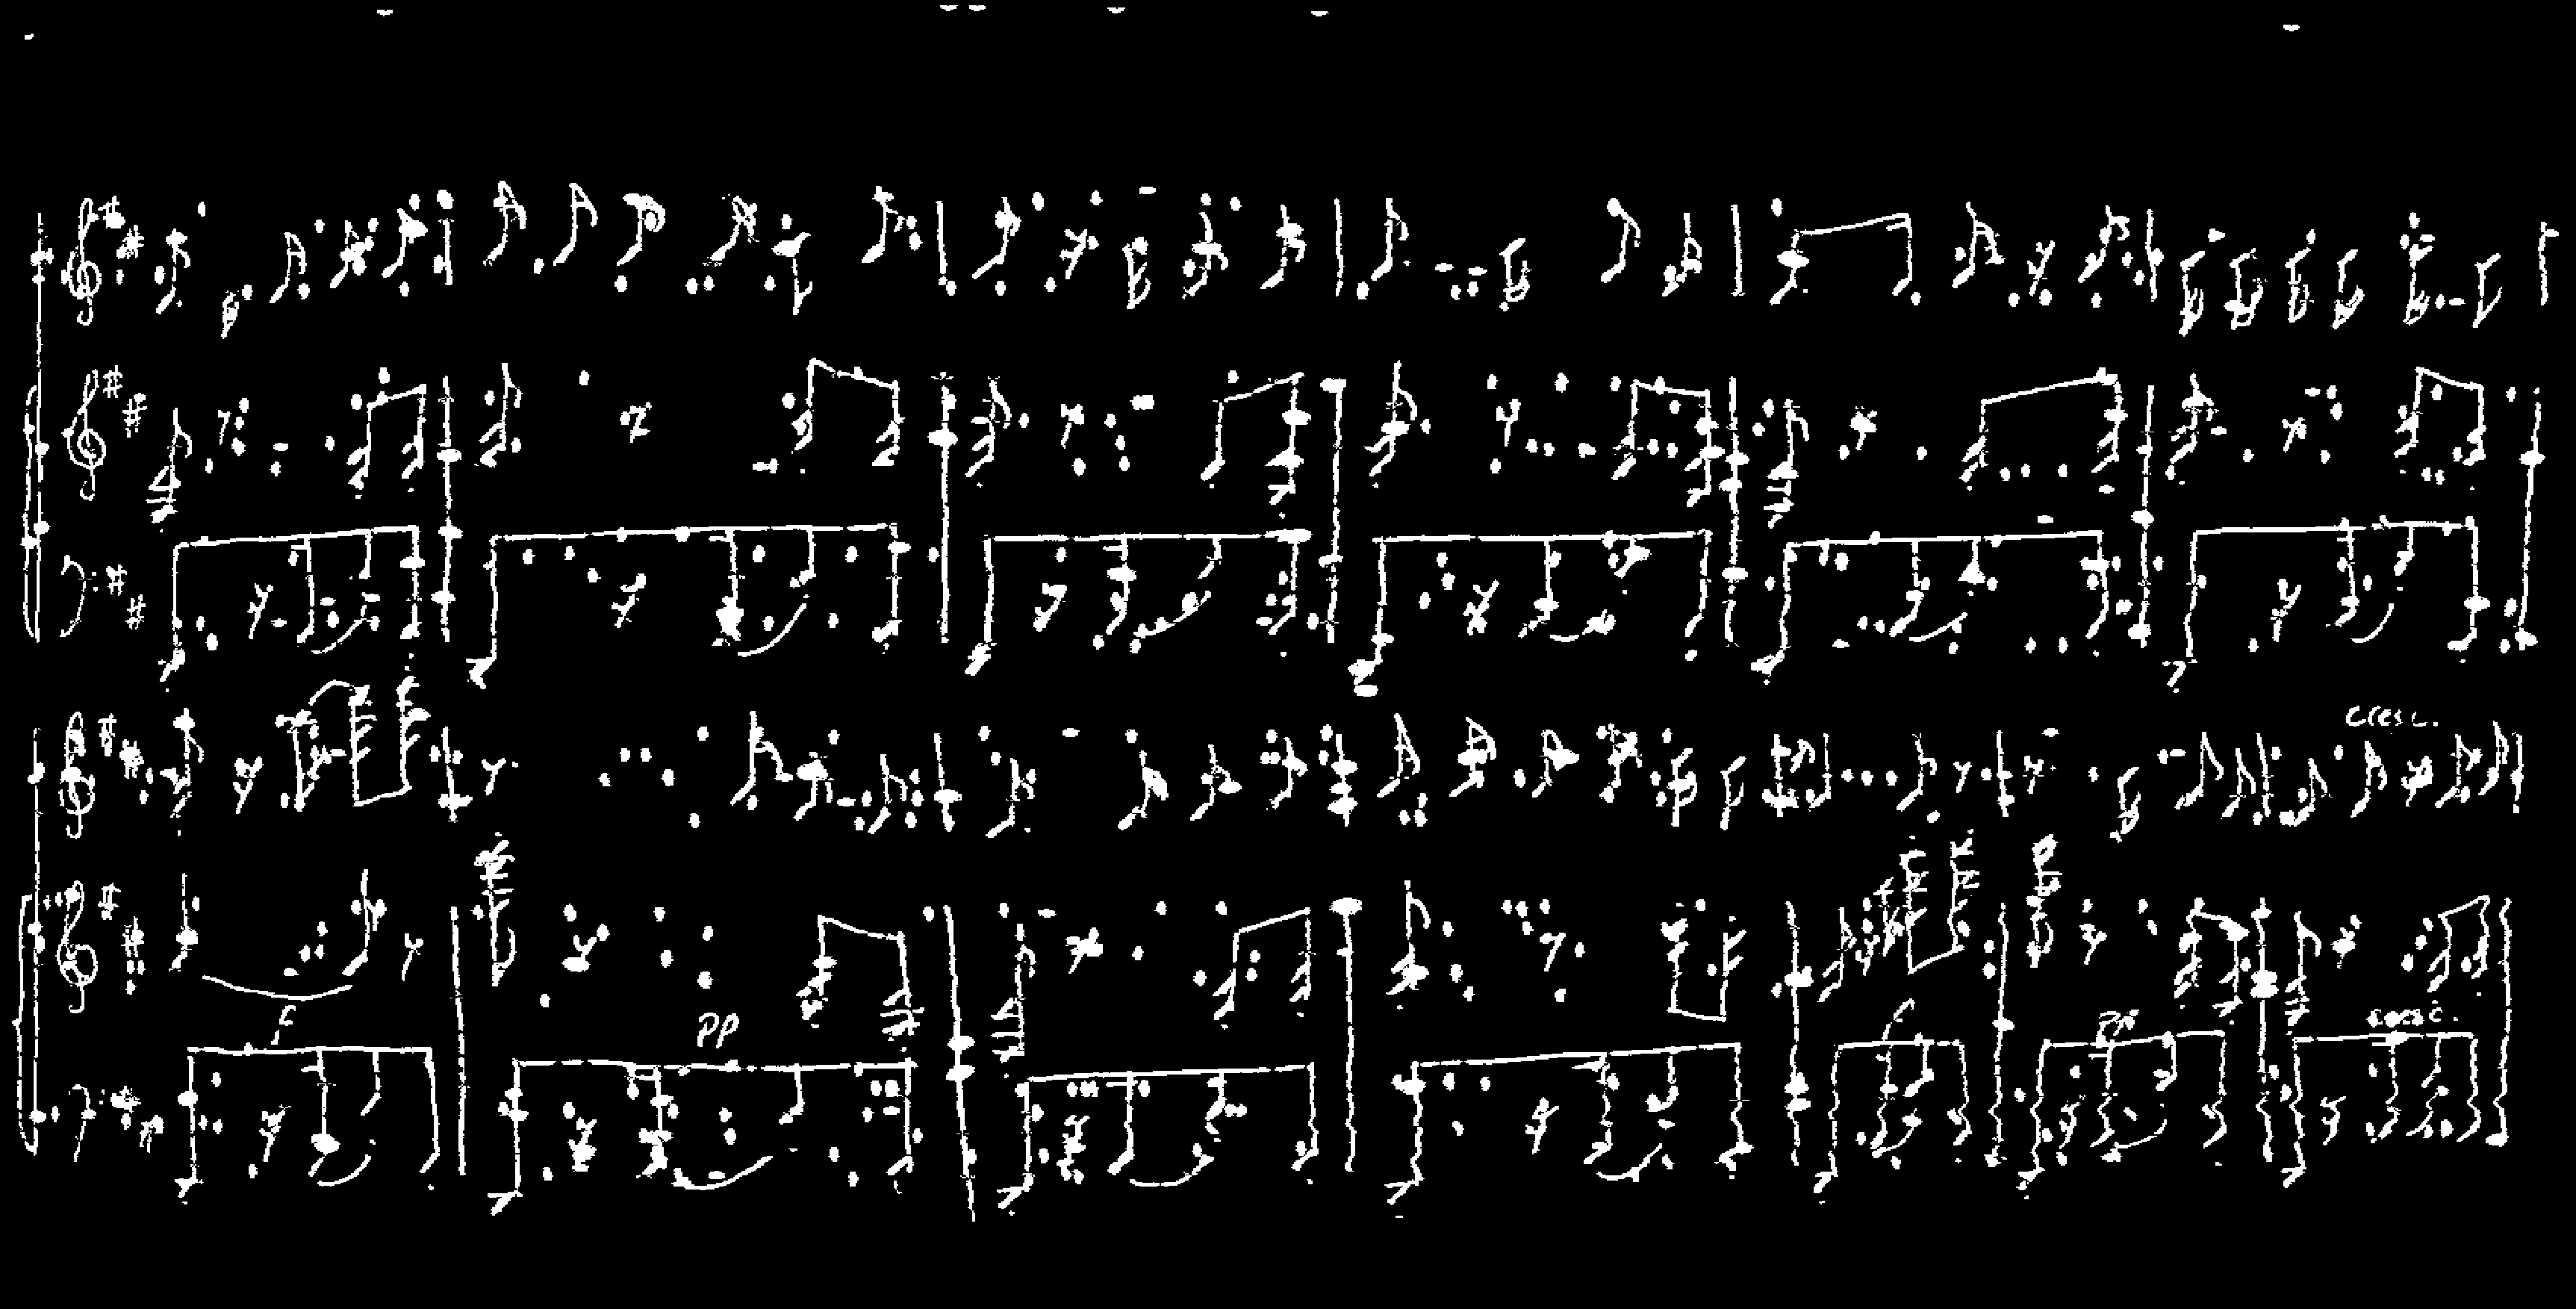 cresc.
f
pp
pp
cresc.